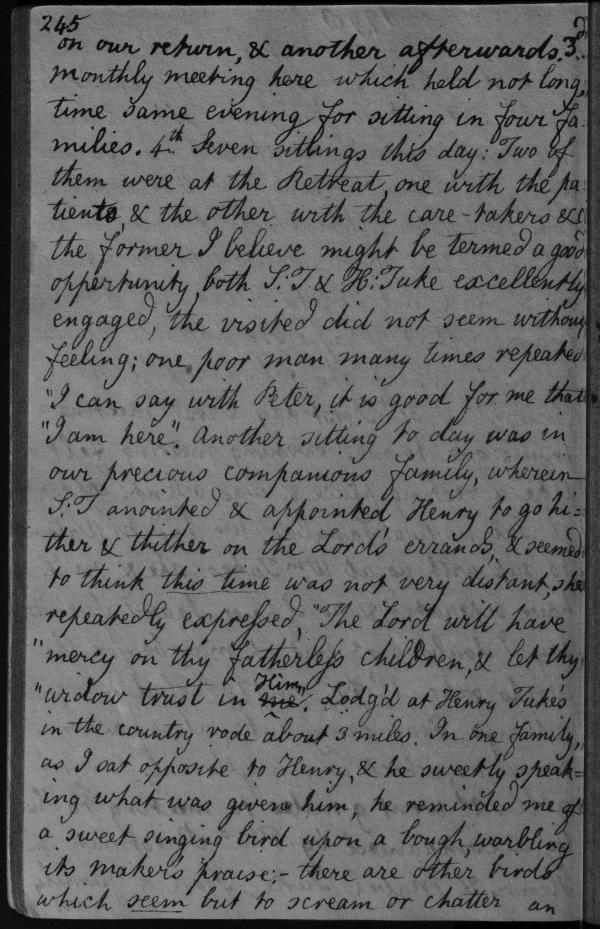 245
on our return, & another afterwards. 3d.
monthly meeting here which held not long,
time same evening for sitting in four fa-
milies. 4th. Seven sittings this day: Two of
them were at the Retreat, one with the pa-
tients, & the other with the care-takers &c
the former I believe might be termed a good
oppertunity, both S:T & H: Tuke excellently
engaged, the visited did not seem without
feeling; one poor man many times repeated
"I can say with Peter, it is good for me that
"I am here". Another sitting to day was in
our precious companions family, wherein
S:T anointed & appointed Henry to go hi=
ther & thither on the Lord's errands, & seemed
to think this time was not very distant, she
repeatedly expressed, "The Lord will have
"mercy on thy fatherless children, & let thy
"widow trust in me Him". Lodg'd at Henry Tuke's
in the country rode about 3 miles. In one family,
as I sat opposite to Henry, & he sweetly speak=
ing what was given him, he reminded me of
a sweet singing bird upon a bough, warbling
its maker's praise:- there are other birds
which seem but to scream or chatter an